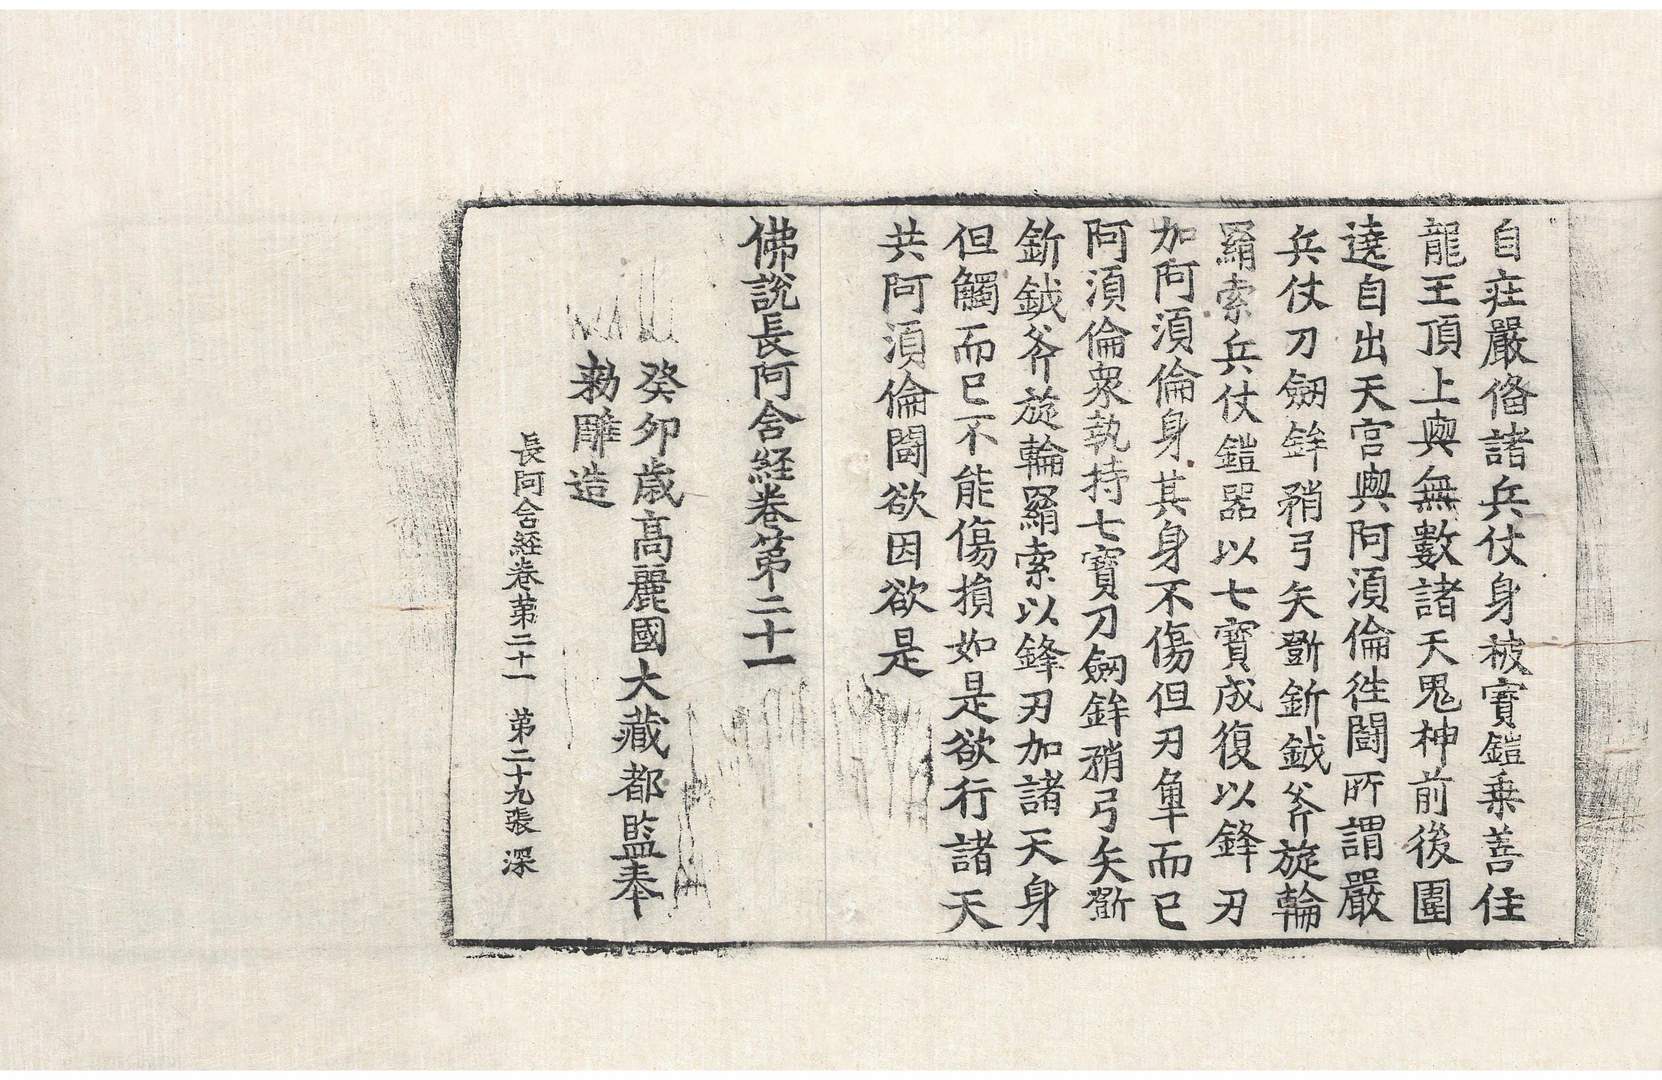 自莊嚴俻諸兵仗身被寶鎧乗善住
龍王頂上與無數諸天鬼神前後圍
遶自出天宮與阿湏倫徃鬪所謂嚴
兵仗刀劒鉾矟弓矢斵釿鉞斧旋輪
羂索兵仗鎧器以七寶成復以鋒刃
加阿湏倫身其身不傷但刃触而已
阿湏倫衆執持七寶刀劒鉾矟弓矢斵
釿鉞斧旋輪羂索以鋒刃加諸天身
但觸而已不能傷損如是欲行諸天
共阿湏倫鬪欲因欲是
佛說長阿含経卷第二十一
癸卯歳高麗國大藏都監奉
勅雕造
長阿含経卷第二十一 第二十九張 深